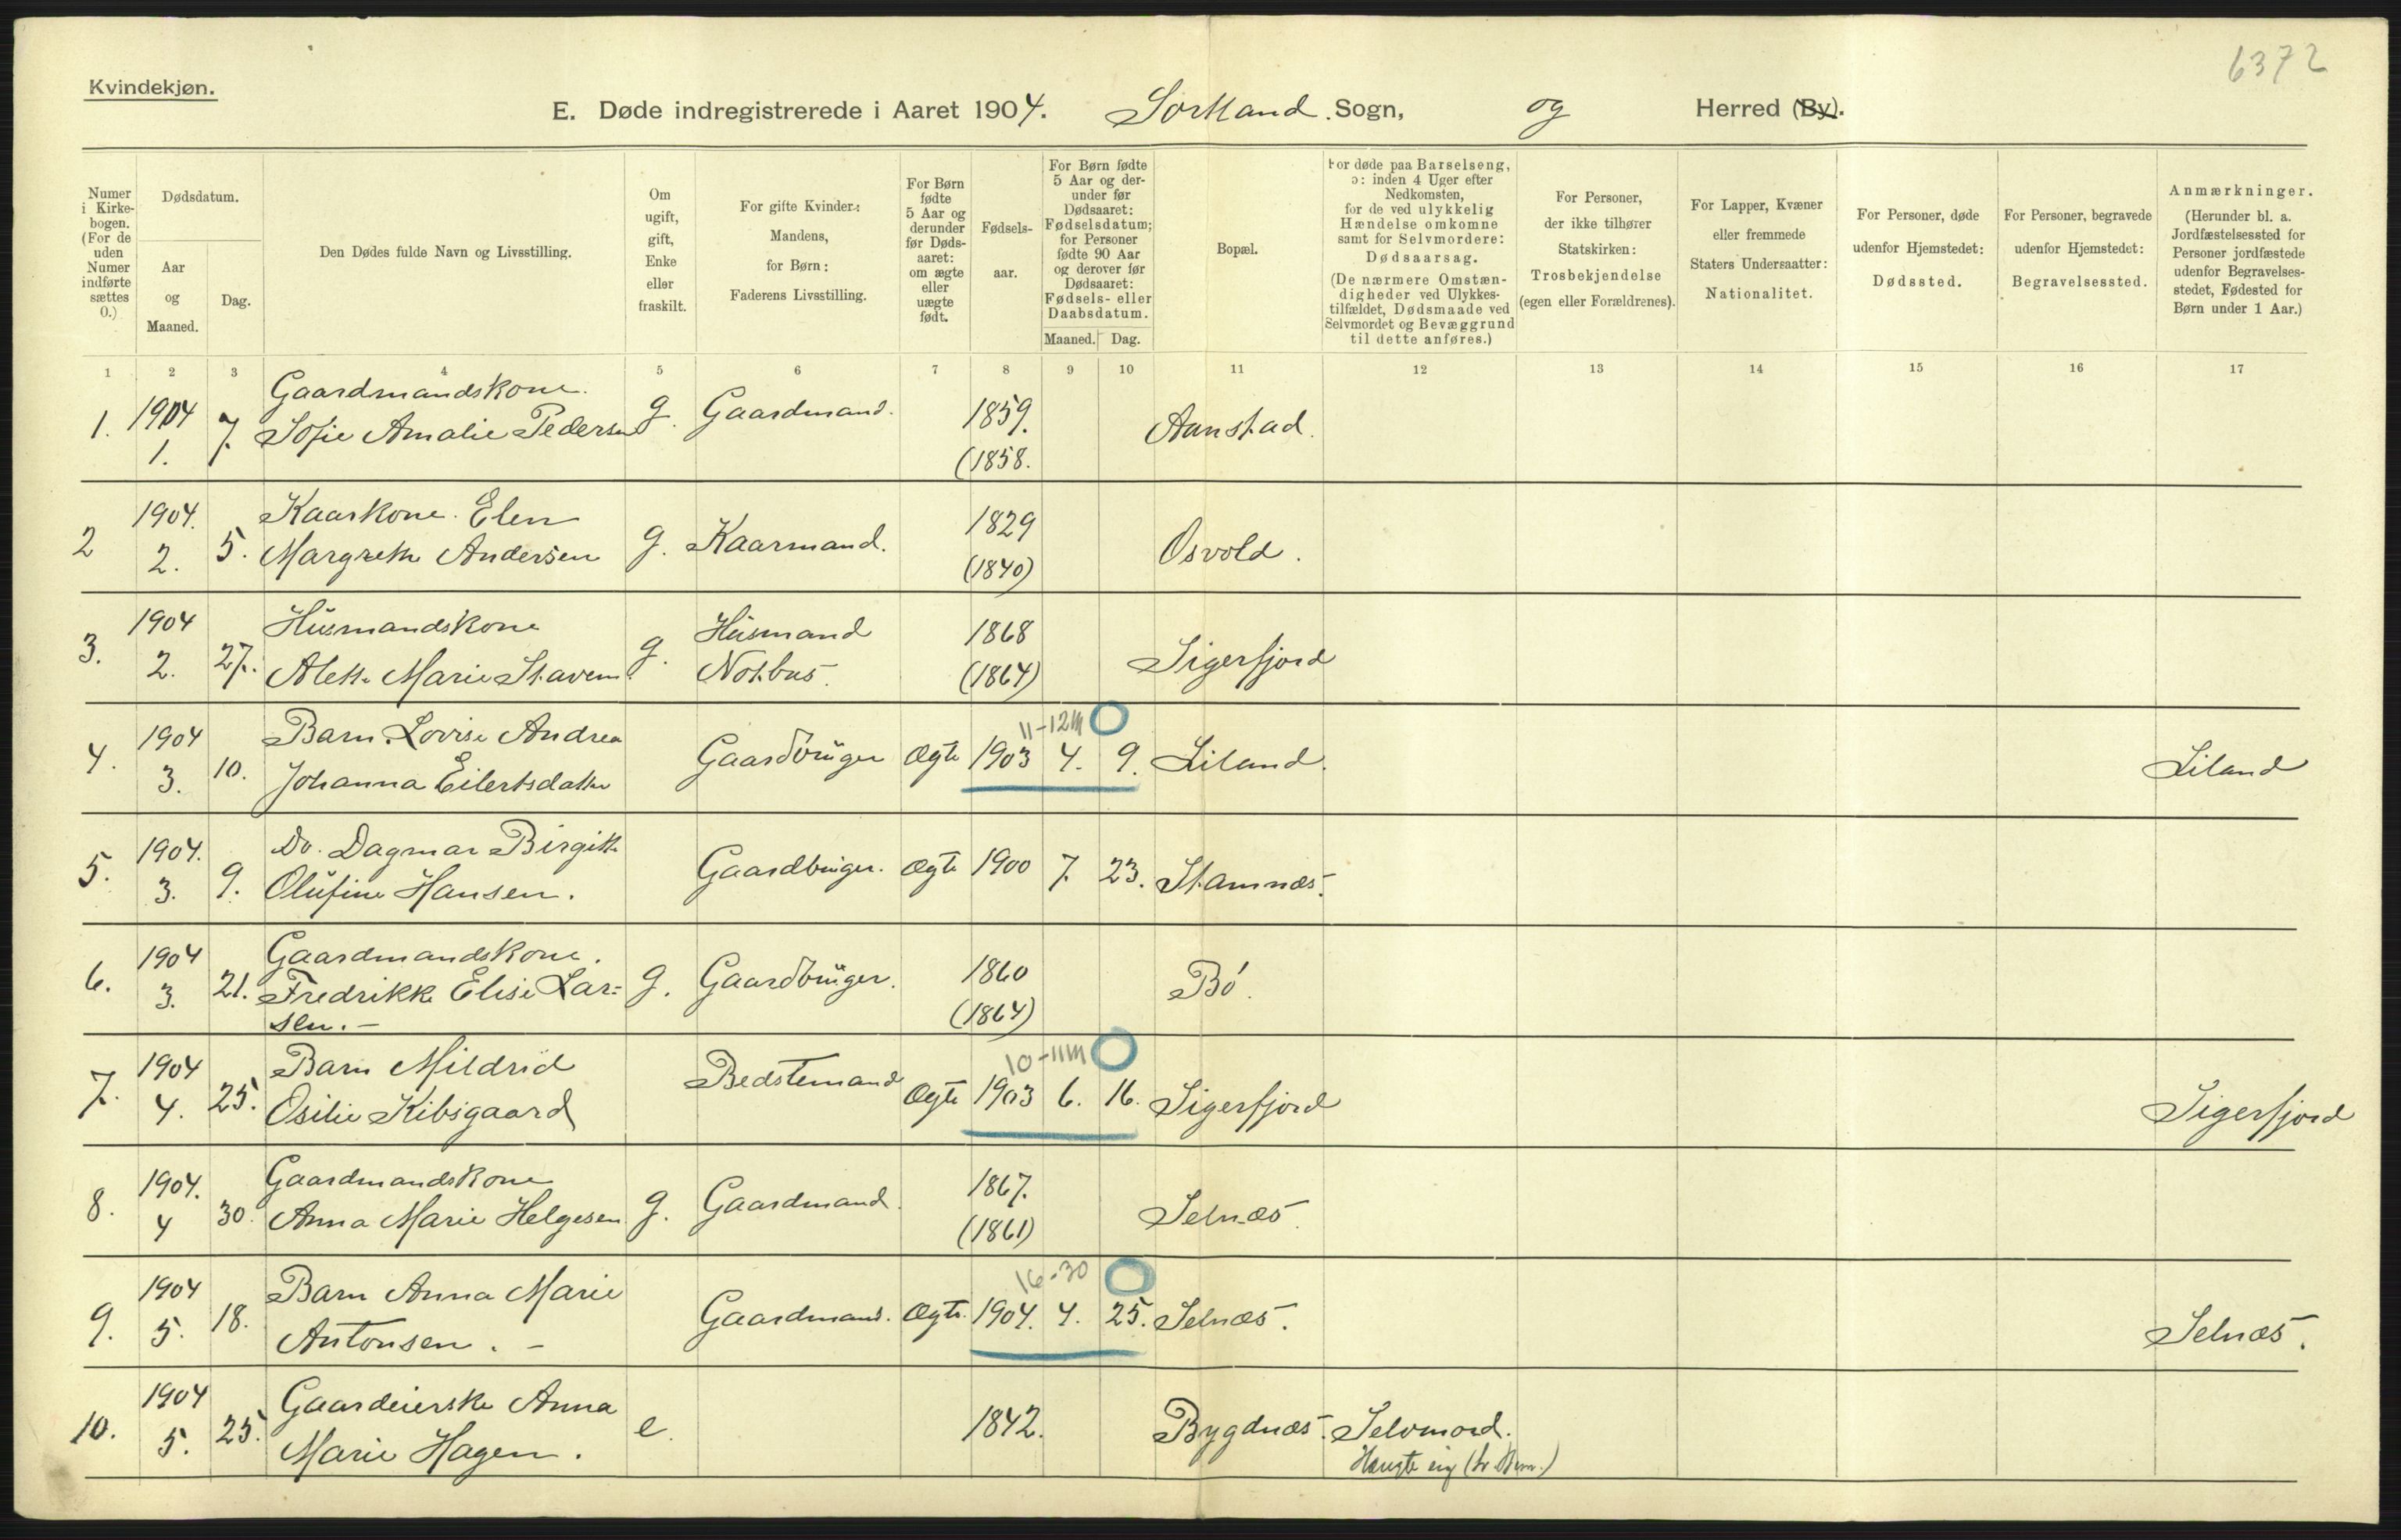 6372
Kvindekjøn.
E. Døde indregistrerede i Aaret 1904. Sortland Sogn, og Herred (By).
Numer i Kirke-bogen. (For de uden Numer indførte sættes 0.)
Dødsdatum.
Aar og Maaned.
Dag.
Den Dødes fulde Navn og Livsstilling.
Om ugift, gift, Enke eller fraskilt.
For gifte Kvinder: Mandens, for Børn: Faderens Livsstilling.
For Børn fødte 5 Aar og derunder før Døds-aaret: om ægte eller uægte født.
Fødsels-aar.
For Børn fødte 5 Aar og der-under før Dødsaaret: Fødselsdatum; for Personer fødte 90 Aar og derover før Dødsaaret: Fødsels- eller Daabsdatum.
Maaned. Dag.
Bopæl.
For døde paa Barselseng, ɔ: inden 4 Uger efter Nedkomsten, for de ved ulykkelig Hændelse omkomne samt for Selvmordere: Dødsaarsag. (De nærmere Omstæn-digheder ved Ulykkes-tilfældet, Dødsmaade ved Selvmordet og Bevæggrund til dette anføres.)
For Personer, der ikke tilhører Statskirken: Trosbekjendelse (egen eller Forældrenes).
For Lapper, Kvæner eller fremmede Staters Undersaatter: Nationalitet.
For Personer, døde udenfor Hjemstedet: Dødssted.
For Personer, begravede udenfor Hjemstedet: Begravelsessted.
Anmærkninger. (Herunder bl. a. Jordfæstelsessted for Personer jordfæstede udenfor Begravelses-stedet, Fødested for Børn under 1 Aar.)
1 2 3 4 5 6 7 8 9 10 11 12 13 14 15 16 17
1. 1904 1. 7. Gaardmandskone. Sofie Amalie Pedersen g. Gaardmand. 1859. (1858. Aanstad.
2 1904. 2. 5. Kaarkone. Elen Margrethe Andersen g. Kaarmand. 1829 (1840) Osvold.
3. 1904 2. 27. Husmandskone Alette Marie Stavem g. Husmand Notbas. 1868 (1864) Sigerfjord
4. 1904 3. 10. Barn Lovise Andrea Johanna Eilertsdatter Gaardbruger Ægte 1903 4. 9. 11-12 m Liland. Liland
5. 1904. 3. 9. Do. Dagmar Birgitte Olufine Hansen. Gaardbruger. Ægte 1900 7. 23. Stamnæs.
6. 1904 3. 21. Gaardmandskone. Fredrikke Elise Lar= sen. — g. Gaardbruger. 1860 (1864) Bö.
7. 1904 4. 25. Barn Mildrid Osilie Kibsgaard Bedstemand Ægte 1903 6. 16. 10-11 m Sigerfjord Sigerfjord
8. 1904. 4 30. Gaardmandskone Anna Marie Helgesen g. Gaardmand. 1867. (1861) Selnæs.
9. 1904 5. 18. Barn Anna Marie Antonsen. — Gaardmand. Ægte. 1904. 4. 25. 16-30 Selnæs. Selnæs.
10. 1904 5. 25. Gaardeierske Anna Marie Hagen. e. 1842. Bygdnæs. Selvmord. Hængte sig